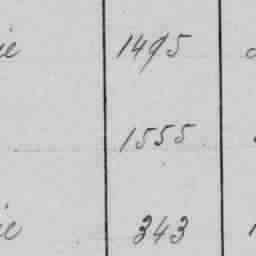 ie 1495
1555
ie 343